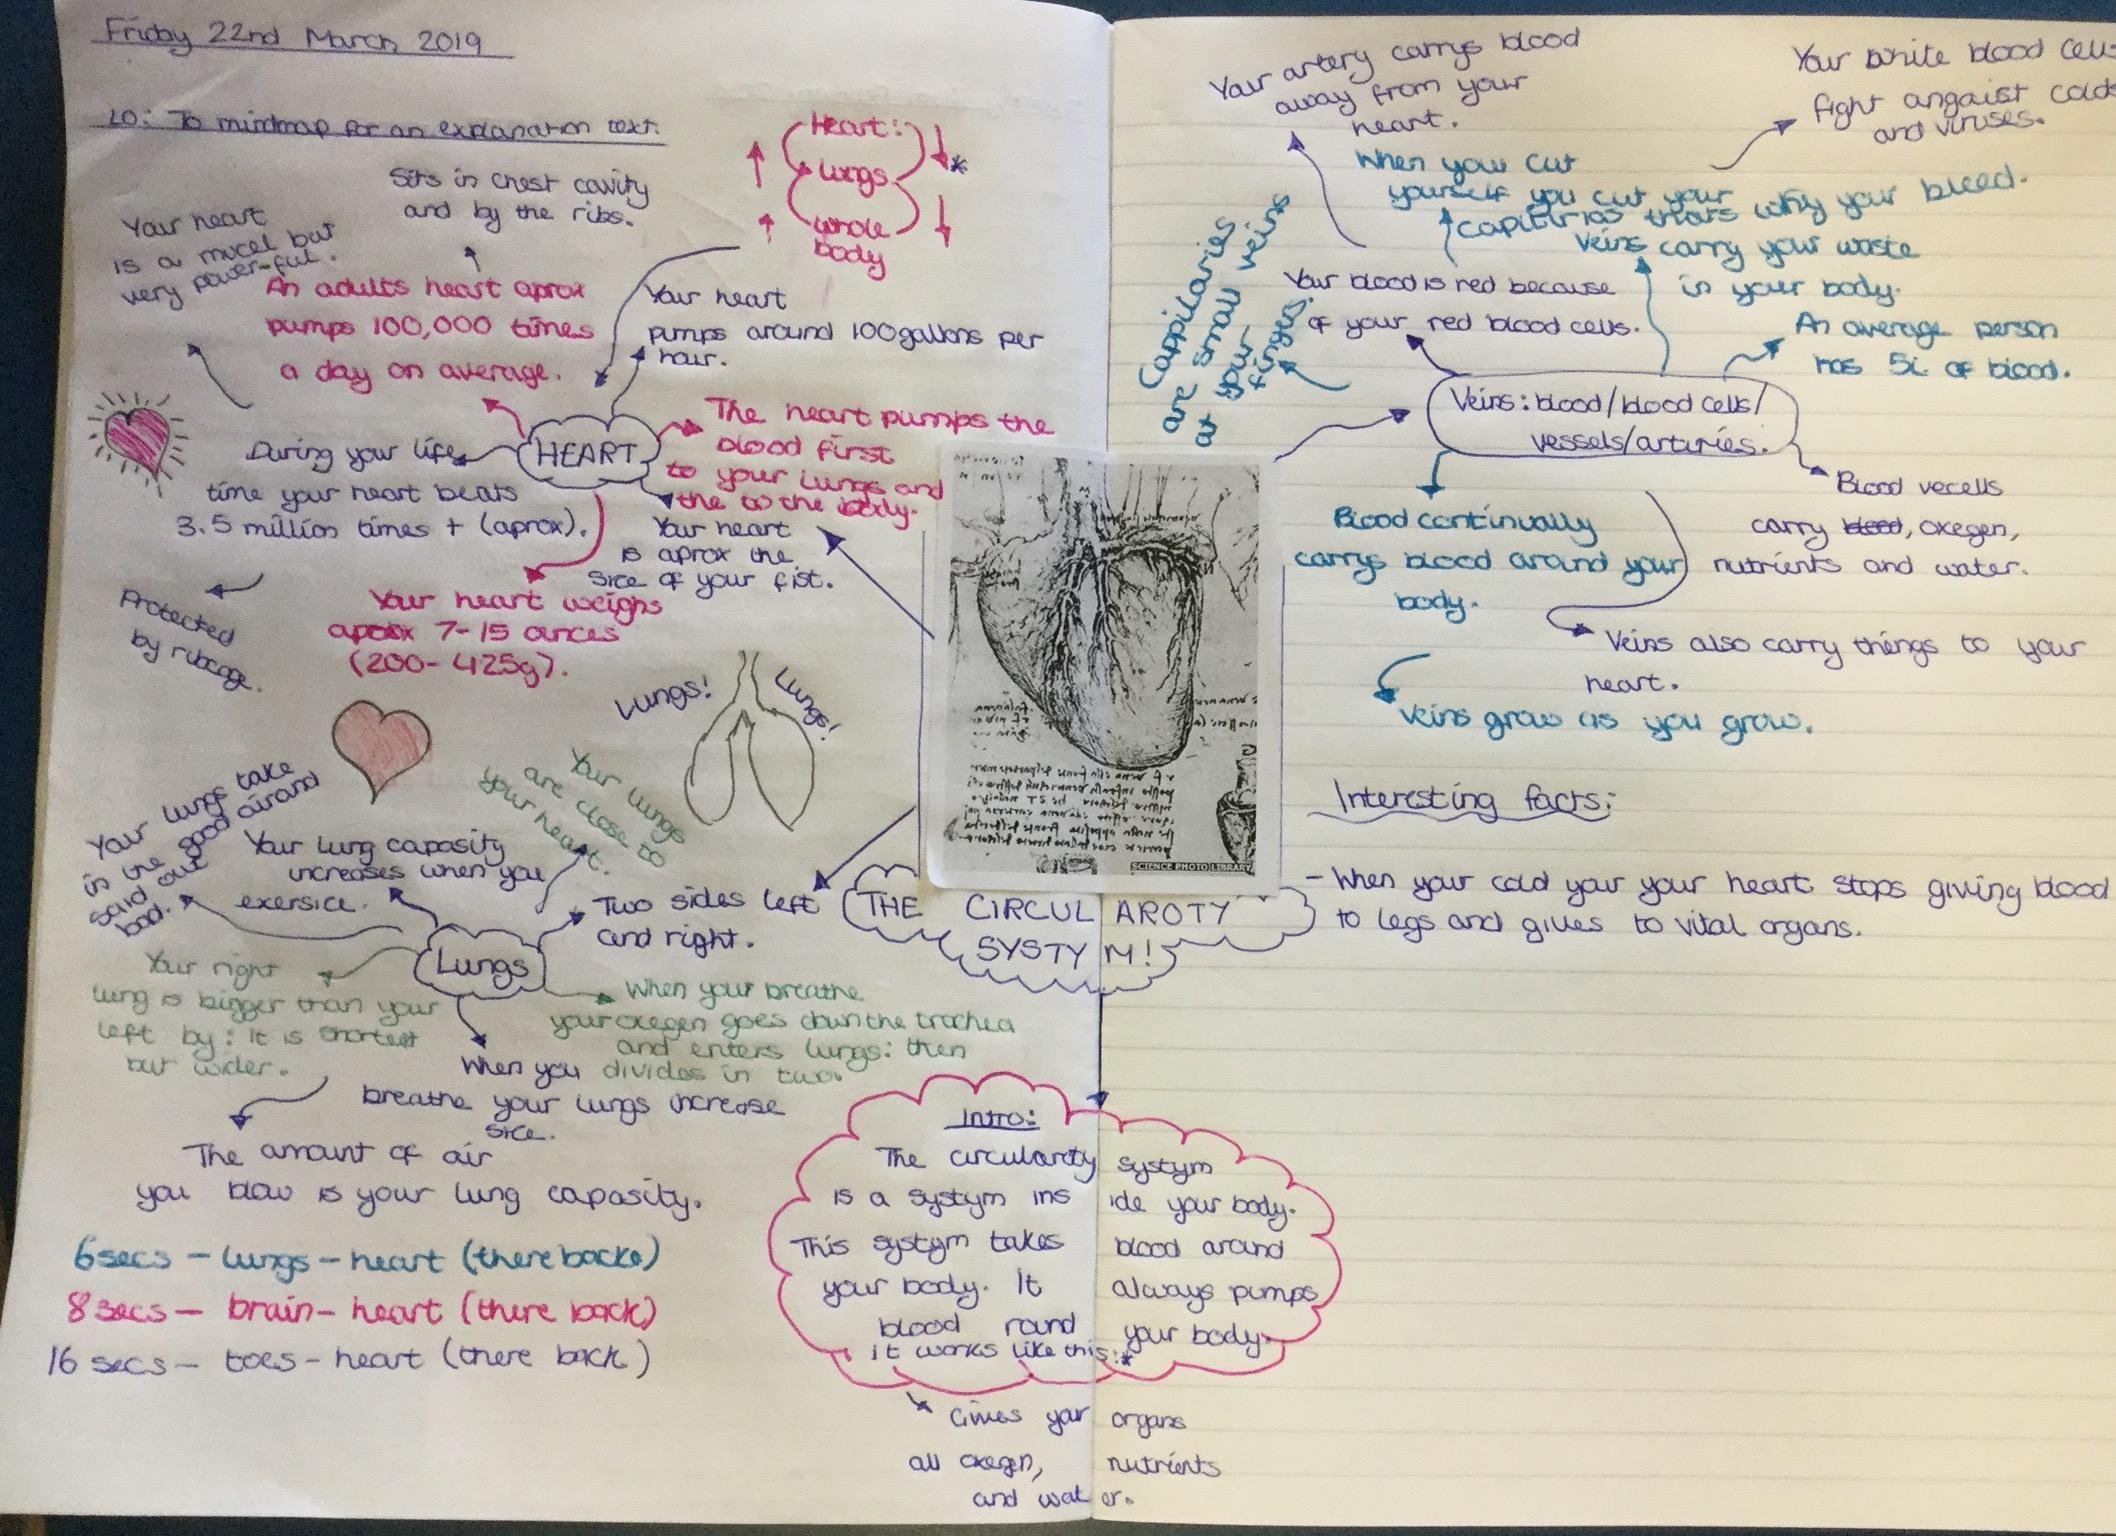 Friday 22nd March 2019
LO: To mindmap for an explanation text.
Sits in chest cavity
and by the ribs.
Your heart
is a mucel but
very power-ful.
Heart:
Lungs
whole
body
*
An adults heart aprox
pumps 100,000 times
a day on average.
Your heart
pumps around 100gallons per
hour.
HEART
During your life
time your heart beats
3.5 million times + (aprox).
The heart pumps the
blood first
to your lungs and
the to the body.
Your heart
is aprox the
sice of your fist.
Protected
by ribcage.
Your heart weighs
aprox 7-15 ounces
(200-425g).
Lungs!
Lungs!
Your lungs
are close to
your heart.
Your lungs take
in the good air and
said out
bad.
Your lung capasity
increases when you
exersice.
Two sides left
and right.
Lungs
Your right
lung is bigger than your
left by: it is shortest
but wider.
When your breathe
your oxegen goes down the trachea
and enters lungs: then
divides in two.
When you
breathe your lungs increase
sice.
The amount of air
you blow is your lung capasity.
6 secs - lungs - heart (there backe)
8 secs - brain - heart (there back)
16 secs - toes - heart (there back)
SCIENCE PHOTO LIBRARY
THE CIRCULAROTY
SYSTYM!
Intro:
The circularoty systym
is a systym inside your body.
This systym takes blood around
your body. It always pumps
blood round your body.
it works like this:*
Gives your organs
all oxegen, nutrients
and water.
Your artery carrys blood
away from your
heart.
Your white blood cells
fight angaist colds
and viruses.
When you cut
yourself you cut your
capilarias thats why your bleed.
Cappilaries
are small veins
at your
finges.
Veins carry your waste
in your body.
Your blood is red because
of your red blood cells.
An average person
has 5L of blood.
Veins: blood/blood cells/
vessels/arturies.
Blood continually
carrys blood around your
body.
Blood vecells
carry blood, oxegen,
nutrients and water.
Veins also carry things to your
heart.
Veins grow as you grow.
Interesting facts:
- When your cold your your heart stops giving blood
to legs and gives to vital organs.